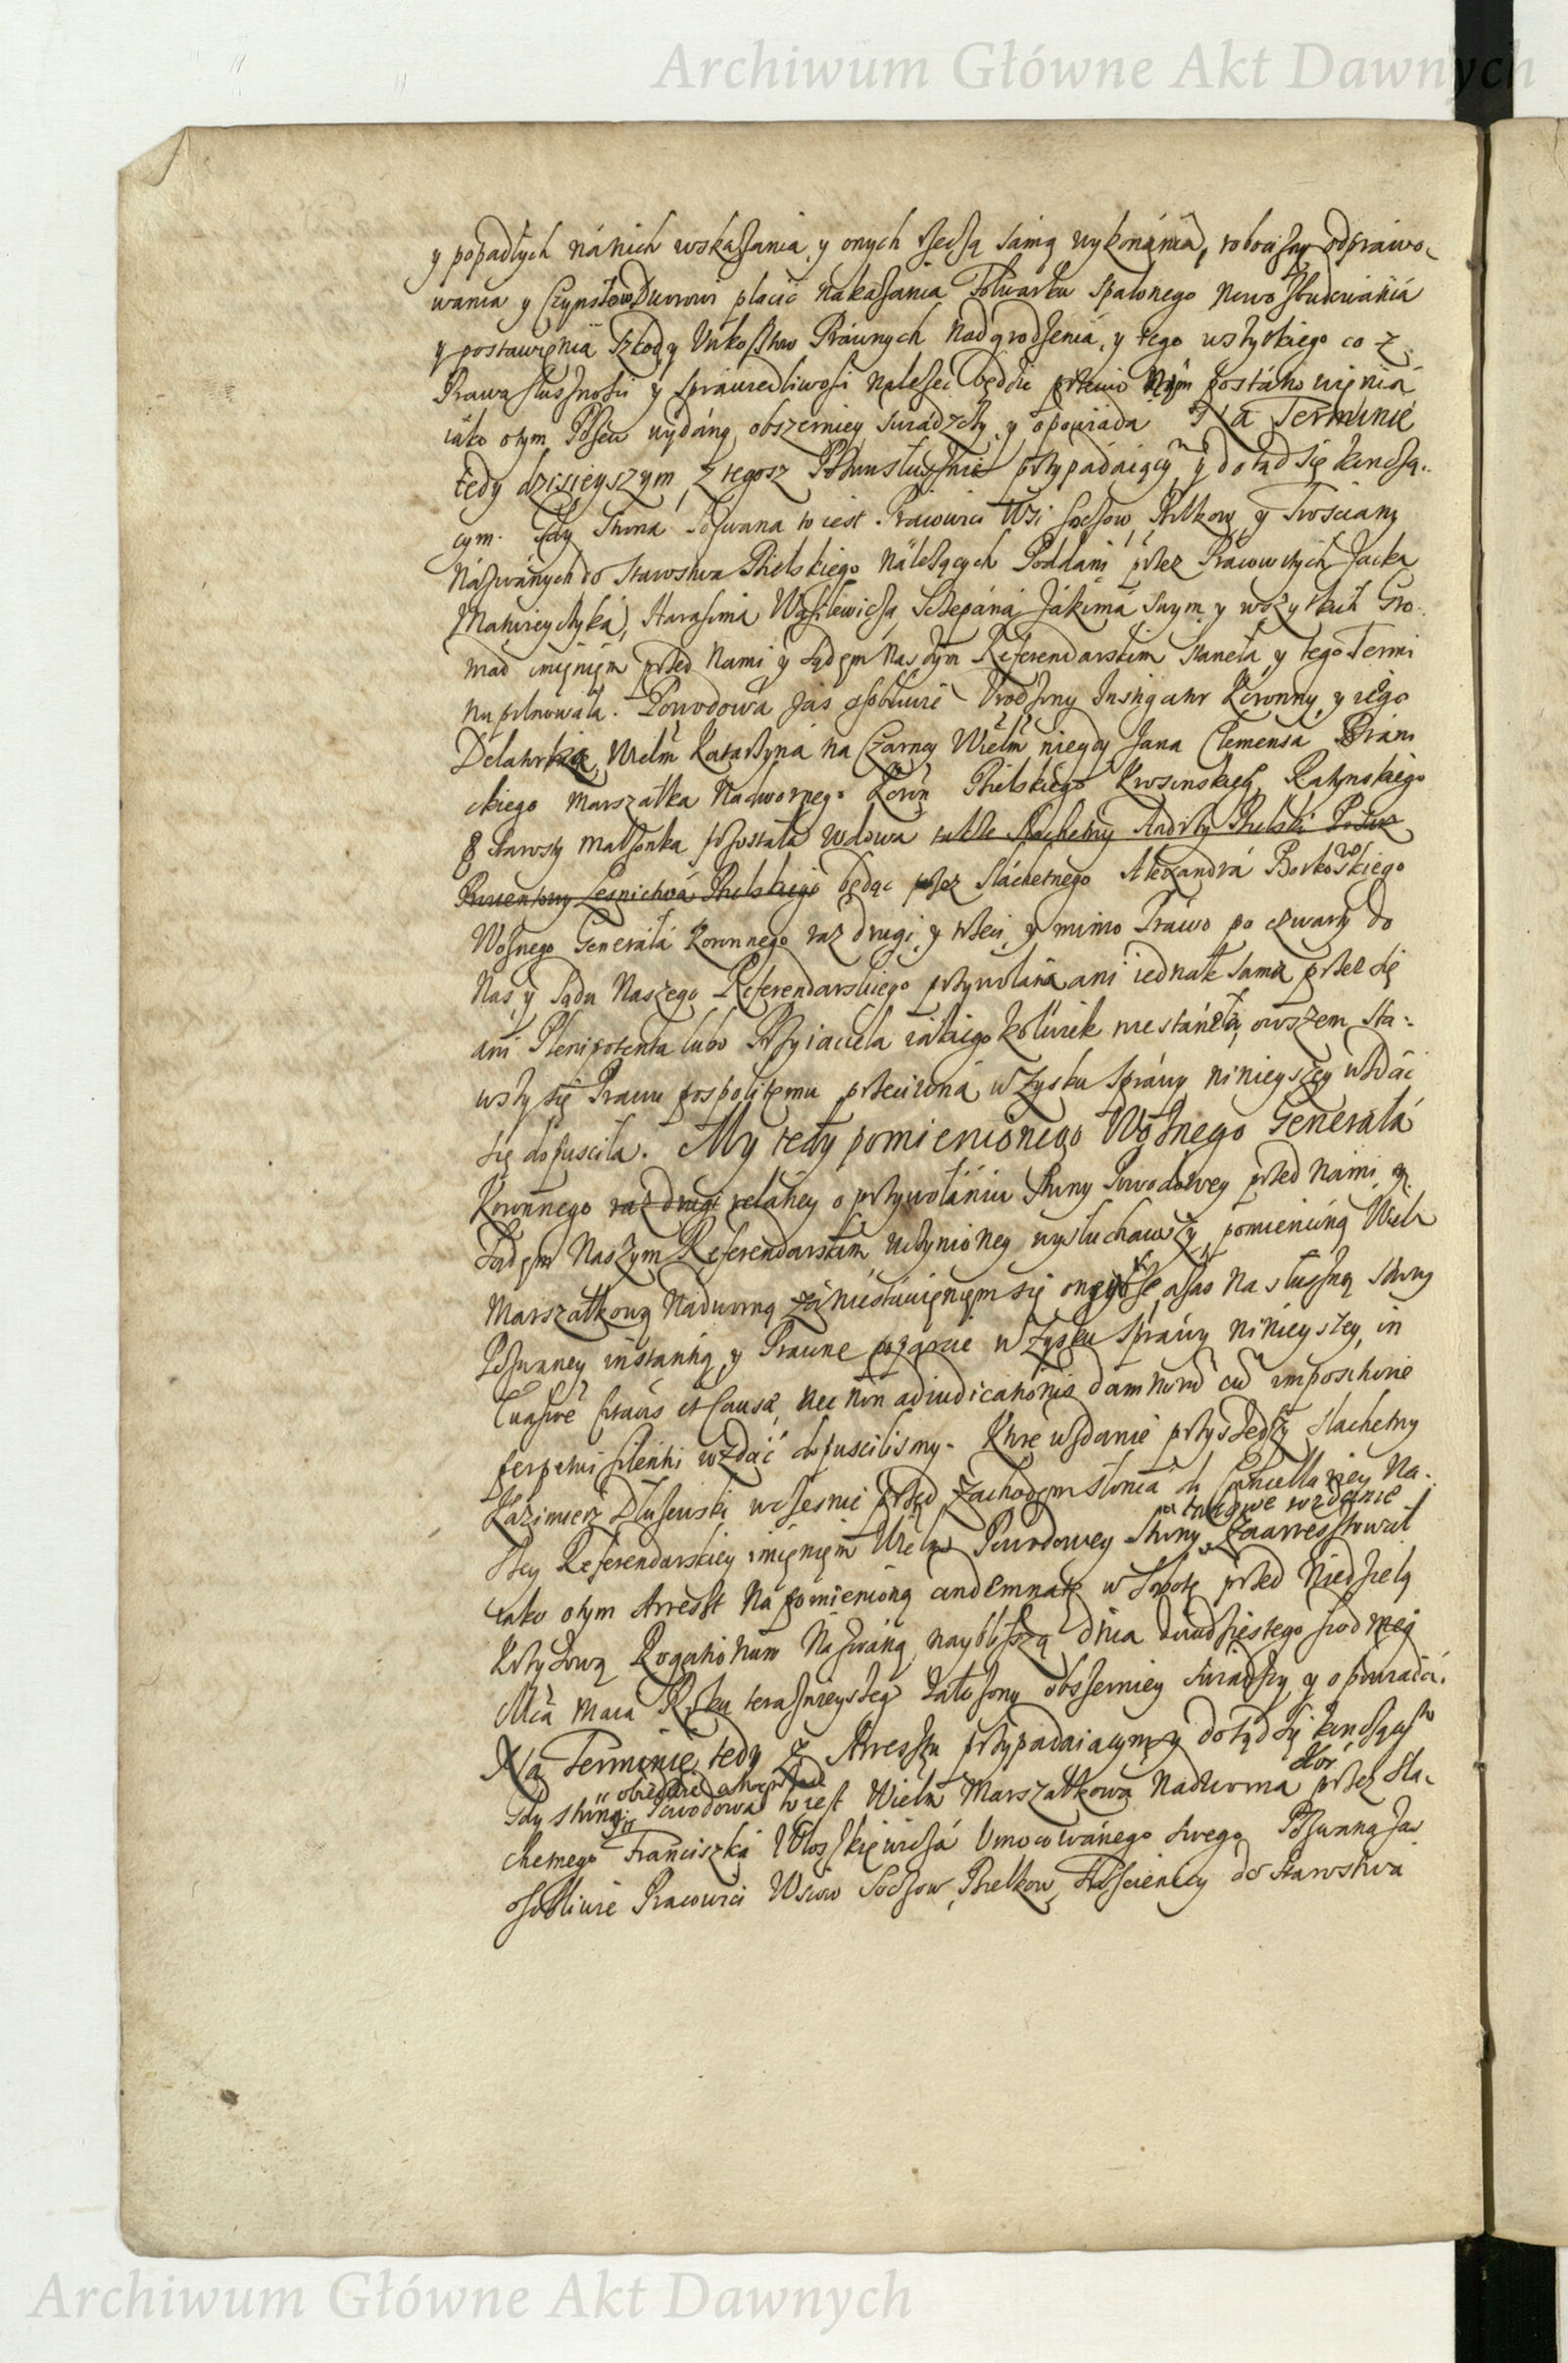 Archiwum Główne Akt Dawnych
y popadłych ná nich wskazania, y onych rzeczą samą wykonánia, robocizny odprawo-
wania y Czynszow Dworowi płacić nakazania Folwarku spalonego nowo zbudowánia
y postawięnia Szkod y Vnkosztow Práwnych nadgrodzenia, y tego wszytkiego co z
Prawa słusznosci y sprawiedliwosci należeć będzie przeciwko nim postánowięnia
iáko otym Pozew wydány obszerniey swiádczy, y opowiáda Na Terminie
tedy dzisieyszym, z tegosz Pozwu słusznie przypádaiącym y dotąd się kończą-
cym. Gdy Strona Pozwana to iest Pracowici Wsi Soczow, Pilkow y Trosciany
Názwánych do Starostwa Bielskiego náleżących Poddáni przez Pracowitych Jacka
Matwieyczyká, Harasima Wasilewicza, Sczepána Jákima swym y wszytkich Gro-
mad imięnięm przed Nami y Sądęm Naszym Referendarskim stanęła, y tego Termi
nu pilnowała. Powodowa zas osobliwie Vrodzony Instigator Koronny, y iego
Delatorka Wielm Katarzyna na Czarncy Wielm niegdy Jana Clemensa Bráni
ckiego Marszałka Nadwornego Koron Bielskiego Krosinskiego Ratynskiego
&c Starosty małżonka pozostała wdowa także Slachetny Andrzy Bielski Podsta
Prowentowy Lesnictwá Bielskiego będąc przez Sláchetnego Alexandrá Borkowskiego
Woźnego Generałá Koronnego raz drugi, y trzeci, y mimo Práwo po czwarty do
Nas y Sądu Naszego Referendarskiego przywołána ani iednak sama przez się
ani Plenipotenta lubo Przyiaciela iákiego kolwiek nie stánęła, owszem sta-
wszy się Prawu pospolitęmu przeciwna w zysku spráwy ninieyszey wzdáć
się dopuscila. My tedy pomienionego Woźnego Generałá
Koronnego raz drugi relátiey o przywołániu Strony Powodowey przed Nami, y
Sądęm Naszym Referendarskim uczynioney wysłuchawszy, pomienioną Wielm
Marszałkową Nadworną zá niestáwięnięm się oneyże, a zas na słuszną strony
Pozwaney instantią, y Prawne poparcie w zysku spráwy ninieyszey, in
Euasione Citaõis et Causæ, nec non adiudicationis damnorũ cũ impositione
perpetui silentii wzdać dopuscilismy. Ktore wzdanie przyszedszy Slachetny
Kazimierz Dłużewski wczesnie przed Zachodęm słonca do Cancellariey Na-
szey Referendarskiey imięnięm Wielm Powodowey Strony zaarresztował
iako otym Arreszt na pomienioną condemnatę w Sobotę przed Niedzielą
Krzyżową Rogationum Nazwáną nayblizszą dnia dwudziestego siodmego
Mca Maia Roku teraznieyszego założony obszerniey swiadczy, y opowiada.
Na Terminie tedy z Arresztu przypadaiącym y dotąd się kończącym
Gdy strony obiedwie Powodowa to iest Wielm Marszałkowa Nadworna przez Sla-
chetnego Franciszka Włoszkiewiczá Vmocowánego swego Pozwana zas
osobliwie Pracowici Wsiow Soczow, Pielkow, Trosciency do Starostwa
Archiwum Główne Akt Dawnych